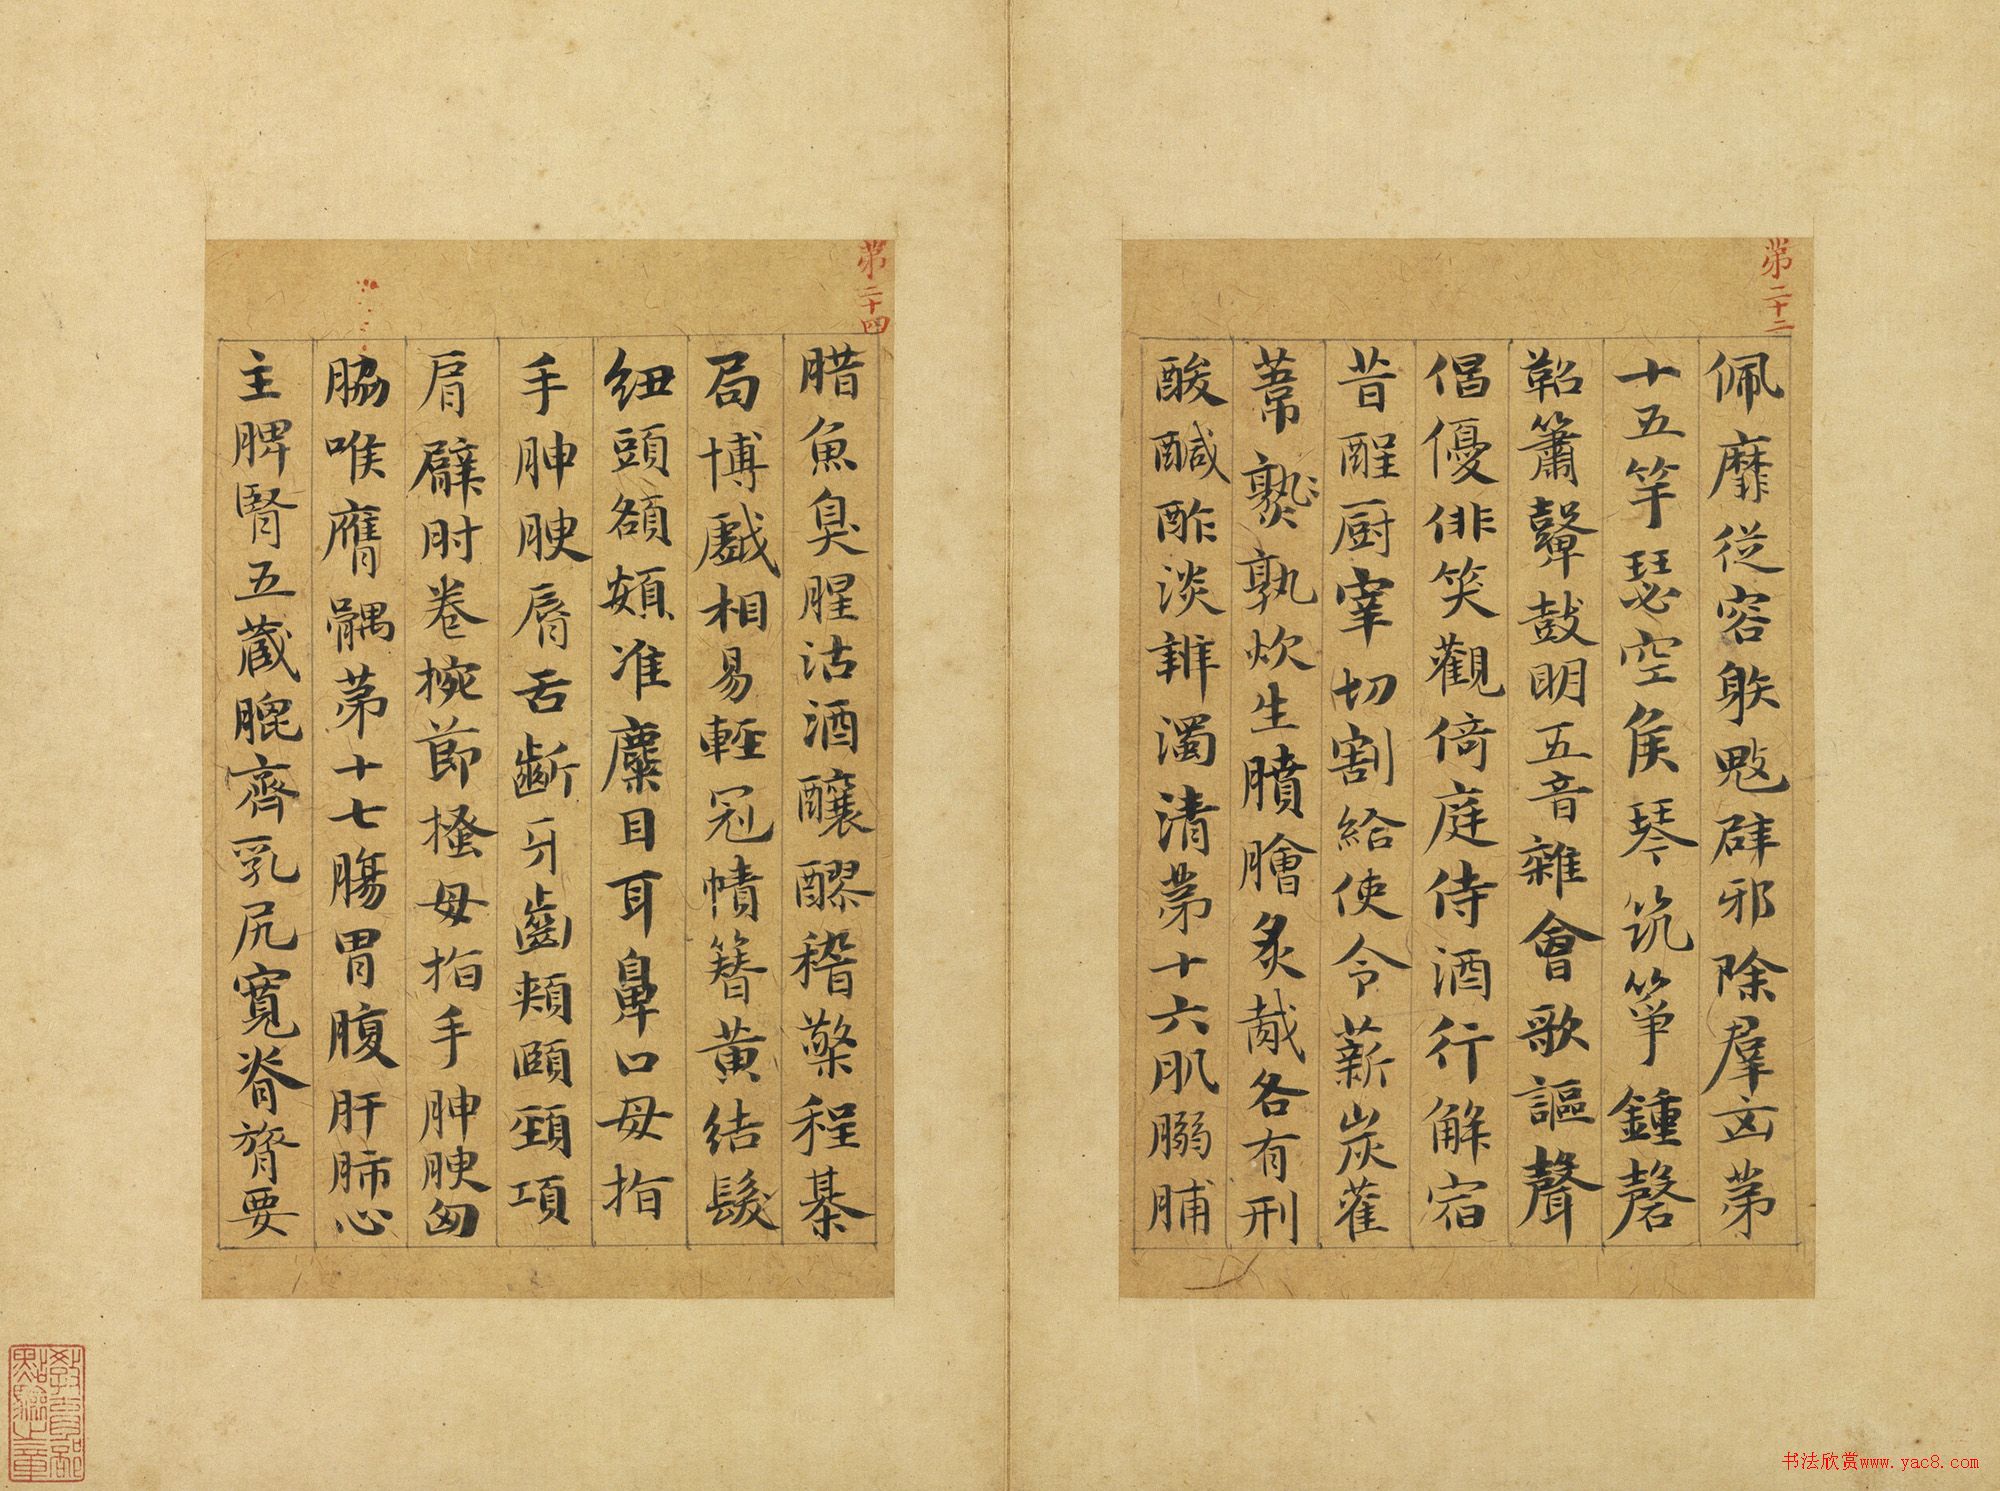 第二十二
佩靡從容䠶鬽辟邪除羣凶苐
十五竽瑟空侯琴筑筝鍾磬
鞀簫鼙鼓明五音雜會歌謳聲
倡優俳笑觀倚庭侍酒行觧宿
昔酲厨宰切割給使令薪炭雚
葦𤎅孰炊生䐣膾炙胾各有刑
酸醎酢淡辨濁清苐十六肌䐧脯
第二十四
腊魚臭腥沽酒釀醪稽檠程棊
局博戲相易輕冠幘簪黄結髮
紐頭頟頞准麋目耳鼻口母指
手胂腴脣舌齗牙齒頰頤頸項
肩臂肘卷捥節搔母指手胂腴匈
脇喉膺髃苐十七腸胃腹肝肺心
主脾腎五蔵膍齊乳尻寬脊膂要
教育部點驗之章
书法欣赏www.yac8.com